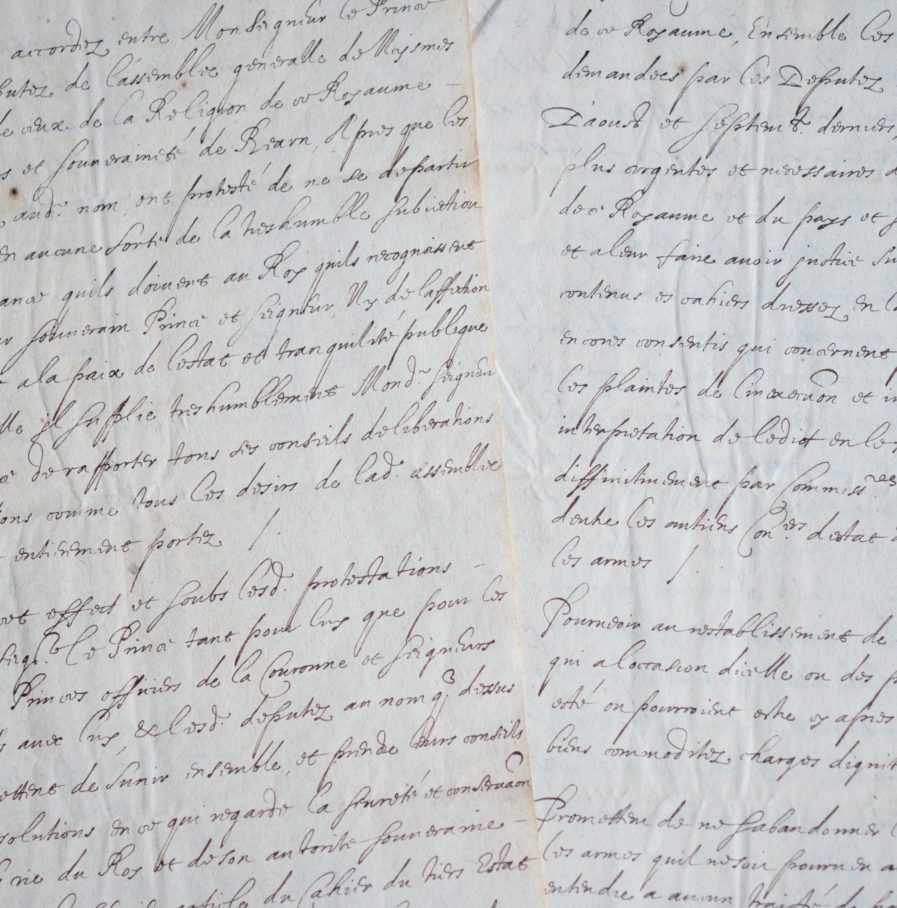 accordez entre Monseigneur le Prince
putez de lassemblee generalle de Nysmes
de ceux de la Religion de ce Royaume
s et souveraineté de Bearn, Apres que les
aud. nom, ont protesté de ne se departir
en aucune sorte de la treshumble subiection
ance quils doivent au Roy quils recognoissent
ur souverain Prince et seigneur Ny de laffection
a la paix de lestat et tranquilité publique
lle Il supplie treshumblement Mond. seigneur
ce de rapporter tous ses conseils deliberations
ons comme tous les desirs de lad. assemblee
entierement portez /.
cet effect et soubs lesd. protestations
seigr. le Prince tant pour luy que pour les
Princes officiers de la Couronne et seigneurs
s avec luy, & lesd. deputez au nom q dessus
ettent de sunir ensemble, et prendre leurs conseils
solutions en ce qui regarde la seureté et conservaon
la vie du Roy et de son autorité souveraine
article du Cahier du tiers Estat
de ce Royaume, Ensemble les
demandees par les Deputez
D'aoust et septemb. derniers,
plus urgentes et necessaires
de ce Royaume et du pays et
et a leur faire avoir justice su
contenus es cahiers dressez en l
encores consentis qui concernent
les plaintes de linexecuon et i
interpretation de ledict en le
diffinitivement par Commissres
dentre les antiens Coners. destat
les armes /.
Pourveoir au restablissement de
qui a loccasion dicelle ou des p
esté ou pourroient estre cy apres
biens commoditez, charges dignit
Promettent de ne sabandonner
les armes quil ne soit pourveu a
entendre a aucun traité de